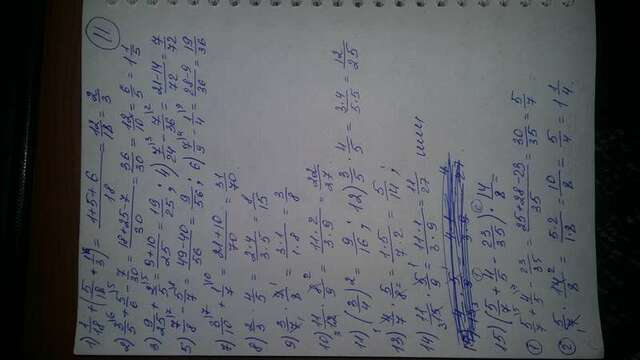 1) 1/18 + (5/18 + 1/3) = (1+5+6)/18 = 12/18 = 2/3
11
2) 3/5 + 5/6 - 7/30 = (18+25-7)/30 = 36/30 = 12/10 = 6/5 = 1 1/5
3) 9/25 + 2/5 = (9+10)/25 = 19/25; 4) 7/24 - 7/36 = (21-14)/72 = 7/72
5) 7/8 - 5/7 = (49-40)/56 = 9/56; 6) 7/9 - 1/4 = (28-9)/36 = 19/36
7) 3/10 + 1/7 = (21+10)/70 = 31/70
8) 2/3 · 4/5 = (2·4)/(3·5) = 8/15
9) 3/7 · 7/8 = (3·1)/(1·8) = 3/8
10) 11/12 · 8/9 = (11·2)/(3·9) = 22/27
11) (3/4)² = 9/16; 12) 3/5 · 4/5 = (3·4)/(5·5) = 12/25
13) 4/7 · 5/8 = (1·5)/(7·2) = 5/14;
14) 11/15 · 5/9 = (11·1)/(3·9) = 11/27 или
15) (5/7 + 4/5 - 23/35) · 14/8 =
① 5/7 + 4/5 - 23/35 = (25+28-23)/35 = 30/35 = 5/7
② 5/7 · 14/8 = (5·2)/(1·8) = 10/8 = 5/4 = 1 1/4